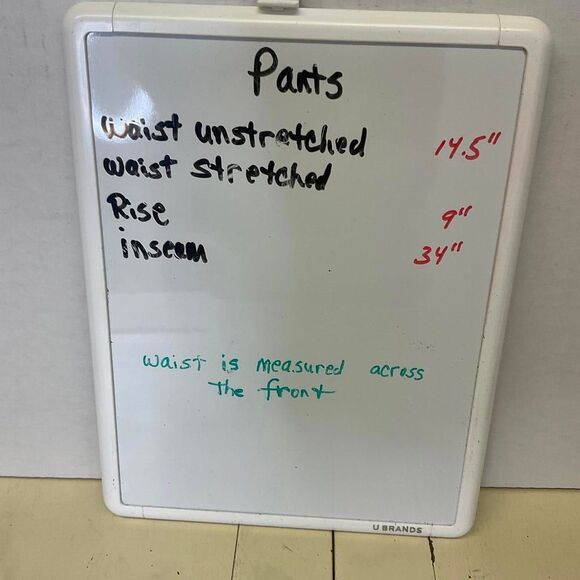 Pants
waist unstretched 14.5"
waist stretched
Rise 9"
inseam 34"
waist is measured across
the front
U BRANDS